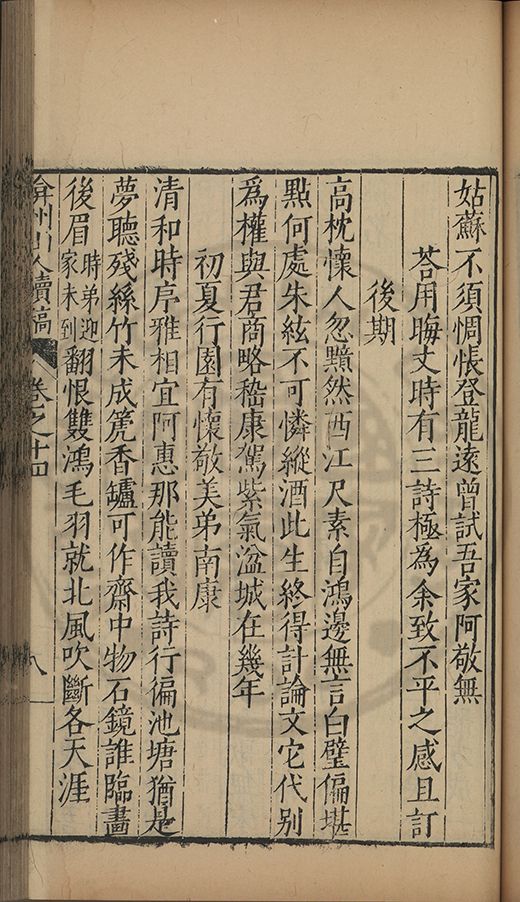 姑蘇不須惆悵登龍遠曾試吾家阿敬無
荅用晦丈時有三詩極為余致不平之感且訂
後期
高枕懷人忽黯然西江尺素自鴻邊無言白璧偏堪
點何處朱絃不可憐縱酒此生終得計論文它代别
為權與君商略嵇康駕紫氣湓城在幾年
初夏行園有懷敬美弟南康
清和時序雅相宜阿惠那能讀我詩行徧池塘猶是
夢聽殘絲竹未成篪香罏可作齋中物石鏡誰臨畵
後眉時弟迎家未到翻恨雙鴻毛羽就北風吹斷各天涯
弇州山人續稿 卷之十四 八